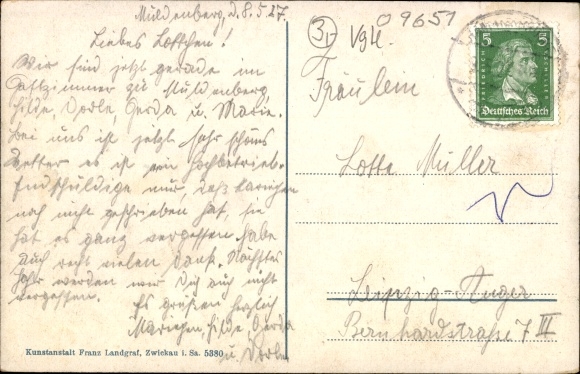 Muldenberg, d. 8.5.27.
Liebes Lottchen!
Wir sind jetzt gerade im
Gastzimmer zu Muldenberg
Hilde, Dorle, Gerda u. Marie.
Bei uns ist jetzt sehr schönes
Wetter es ist ein Hochbetrieb.
Endschuldige nur, daß Mariechen
noch nicht geschrieben hat, sie
hat es ganz vergessen. Habe
auch recht vielen Dank. Nächstes
Jahr werden wir Dich auch nicht
vergessen.
Es grüßen herzlich
Mariechen, Hilde, Gerda
u. Dorle
Kunstanstalt Franz Landgraf, Zwickau i. Sa. 5380
09651
31
Vgtl.
5 5
FRIEDRICH
Deutsches Reich
Fräulein
Lotte Müller
Leipzig-Anger
Bernhardstraße 7 III